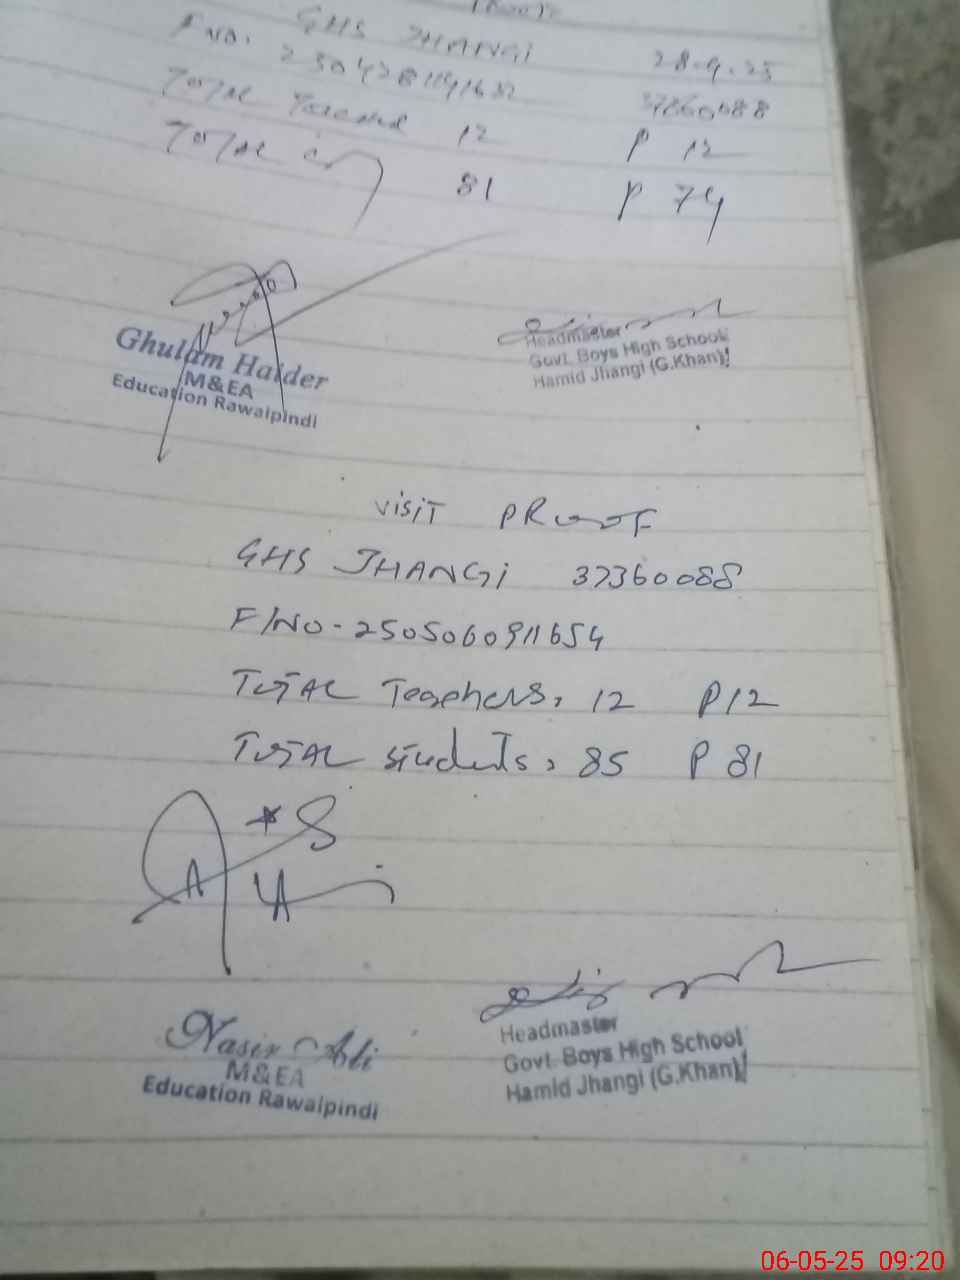 GHS JHANGI 28.4.25
F NO. 2504281141632 37360088
TOTAL Teacher 12 P 12
TOTAL 81 P 74
Ghulam Haider
M&EA
Education Rawalpindi
Headmaster
Govt. Boys High School
Hamid Jhangi (G.Khan)
VISIT PROOF
GHS JHANGI 37360088
F/NO-2505060911654
TOTAL Teachers, 12 P 12
TOTAL students, 85 P 81
Nasir Ali
M&EA
Education Rawalpindi
Headmaster
Govt. Boys High School
Hamid Jhangi (G.Khan)
06-05-25 09:20